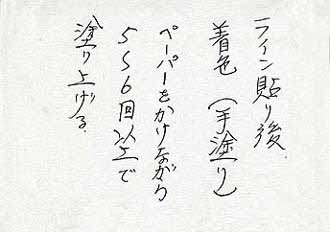 ライン貼り後
着色（手塗り）
ペーパーをかけながら
5〜6回以上で
塗り上げる